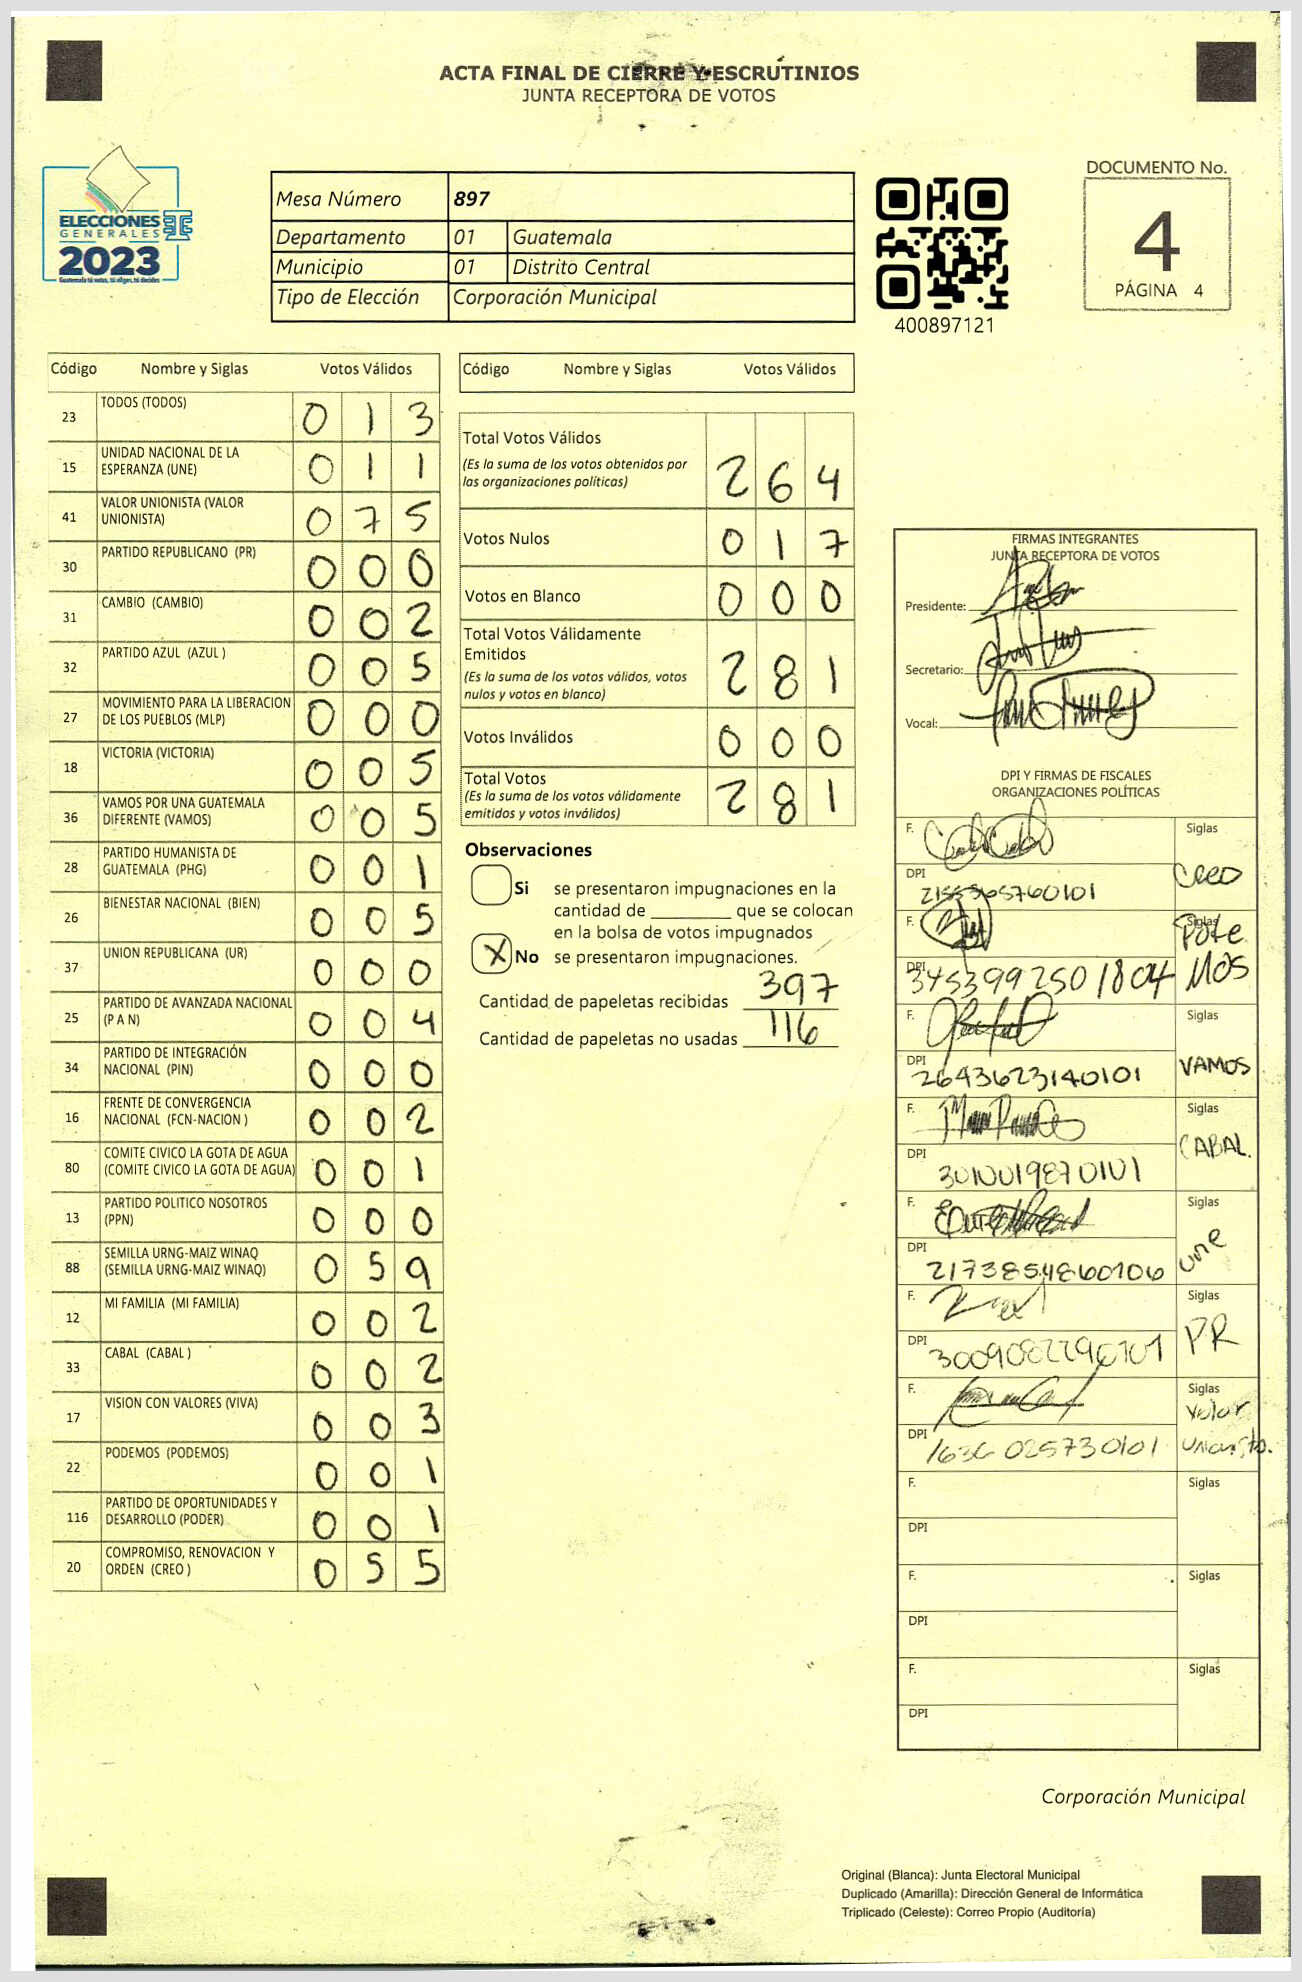 ACTA FINAL DE CIERRE Y ESCRUTINIOS
JUNTA RECEPTORA DE VOTOS
ELECCIONES
GENERALES
2023
Guatemala tú votas, tú eliges, tú decides
Mesa Número 897
Departamento 01 Guatemala
Municipio 01 Distrito Central
Tipo de Elección Corporación Municipal
400897121
DOCUMENTO No.
4
PÁGINA 4
Código Nombre y Siglas Votos Válidos
23 TODOS (TODOS) 0 1 3
15 UNIDAD NACIONAL DE LA ESPERANZA (UNE) 0 1 1
41 VALOR UNIONISTA (VALOR UNIONISTA) 0 7 5
30 PARTIDO REPUBLICANO (PR) 0 0 0
31 CAMBIO (CAMBIO) 0 0 2
32 PARTIDO AZUL (AZUL ) 0 0 5
27 MOVIMIENTO PARA LA LIBERACION DE LOS PUEBLOS (MLP) 0 0 0
18 VICTORIA (VICTORIA) 0 0 5
36 VAMOS POR UNA GUATEMALA DIFERENTE (VAMOS) 0 0 5
28 PARTIDO HUMANISTA DE GUATEMALA (PHG) 0 0 1
26 BIENESTAR NACIONAL (BIEN) 0 0 5
37 UNION REPUBLICANA (UR) 0 0 0
25 PARTIDO DE AVANZADA NACIONAL (P A N) 0 0 4
34 PARTIDO DE INTEGRACIÓN NACIONAL (PIN) 0 0 0
16 FRENTE DE CONVERGENCIA NACIONAL (FCN-NACION ) 0 0 2
80 COMITE CIVICO LA GOTA DE AGUA (COMITE CIVICO LA GOTA DE AGUA) 0 0 1
13 PARTIDO POLITICO NOSOTROS (PPN) 0 0 0
88 SEMILLA URNG-MAIZ WINAQ (SEMILLA URNG-MAIZ WINAQ) 0 5 9
12 MI FAMILIA (MI FAMILIA) 0 0 2
33 CABAL (CABAL ) 0 0 2
17 VISION CON VALORES (VIVA) 0 0 3
22 PODEMOS (PODEMOS) 0 0 1
116 PARTIDO DE OPORTUNIDADES Y DESARROLLO (PODER) 0 0 1
20 COMPROMISO, RENOVACION Y ORDEN (CREO ) 0 5 5
Código Nombre y Siglas Votos Válidos
Total Votos Válidos 2 6 4
(Es la suma de los votos obtenidos por
las organizaciones políticas)
Votos Nulos 0 1 7
Votos en Blanco 0 0 0
Total Votos Válidamente
Emitidos 2 8 1
(Es la suma de los votos válidos, votos
nulos y votos en blanco)
Votos Inválidos 0 0 0
Total Votos 2 8 1
(Es la suma de los votos válidamente
emitidos y votos inválidos)
Observaciones
Si se presentaron impugnaciones en la
cantidad de ________ que se colocan
en la bolsa de votos impugnados
X No se presentaron impugnaciones.
Cantidad de papeletas recibidas 397
Cantidad de papeletas no usadas 116
FIRMAS INTEGRANTES
JUNTA RECEPTORA DE VOTOS
Presidente:
Secretario:
Vocal:
DPI Y FIRMAS DE FISCALES
ORGANIZACIONES POLÍTICAS
F. Siglas
DPI Creo
F. Siglas
DPI 3453992501804 PoDeMOS
F. Siglas
DPI 2643623140101 VAMOS
F. Siglas
DPI 3010019870101 CABAL.
F. Siglas
DPI 2173854860106 une
F. Siglas
DPI PR
F. Siglas
DPI 1636 025730101 Valor Unionista.
F. Siglas
DPI
F. Siglas
DPI
F. Siglas
DPI
Corporación Municipal
Original (Blanca): Junta Electoral Municipal
Duplicado (Amarilla): Dirección General de Informática
Triplicado (Celeste): Correo Propio (Auditoría)